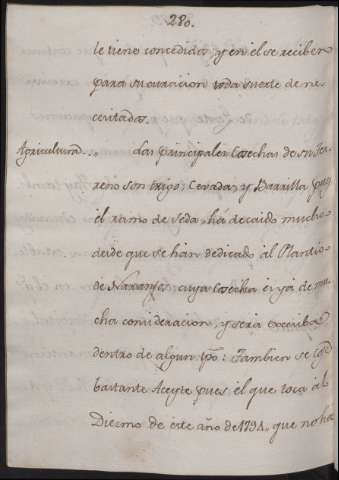 280.
le tiene concedidas y en el se reciben
para su curacion toda suerte de ne-
cesitadas.
Agricultura... Las principales Cosechas de su Ter-
reno son trigo, Cevada, y Barrilla pues
el ramo de Seda, há decaido mucho
desde que se han dedicado al Plantio
de Naranjos, cuya Cosecha es ya de mu-
cha consideracion, y sera excesiba
dentro de algun tpo: Tambien se coje
bastante Aceyte pues el que toca al
Diezmo de este año de 1794, que no ha